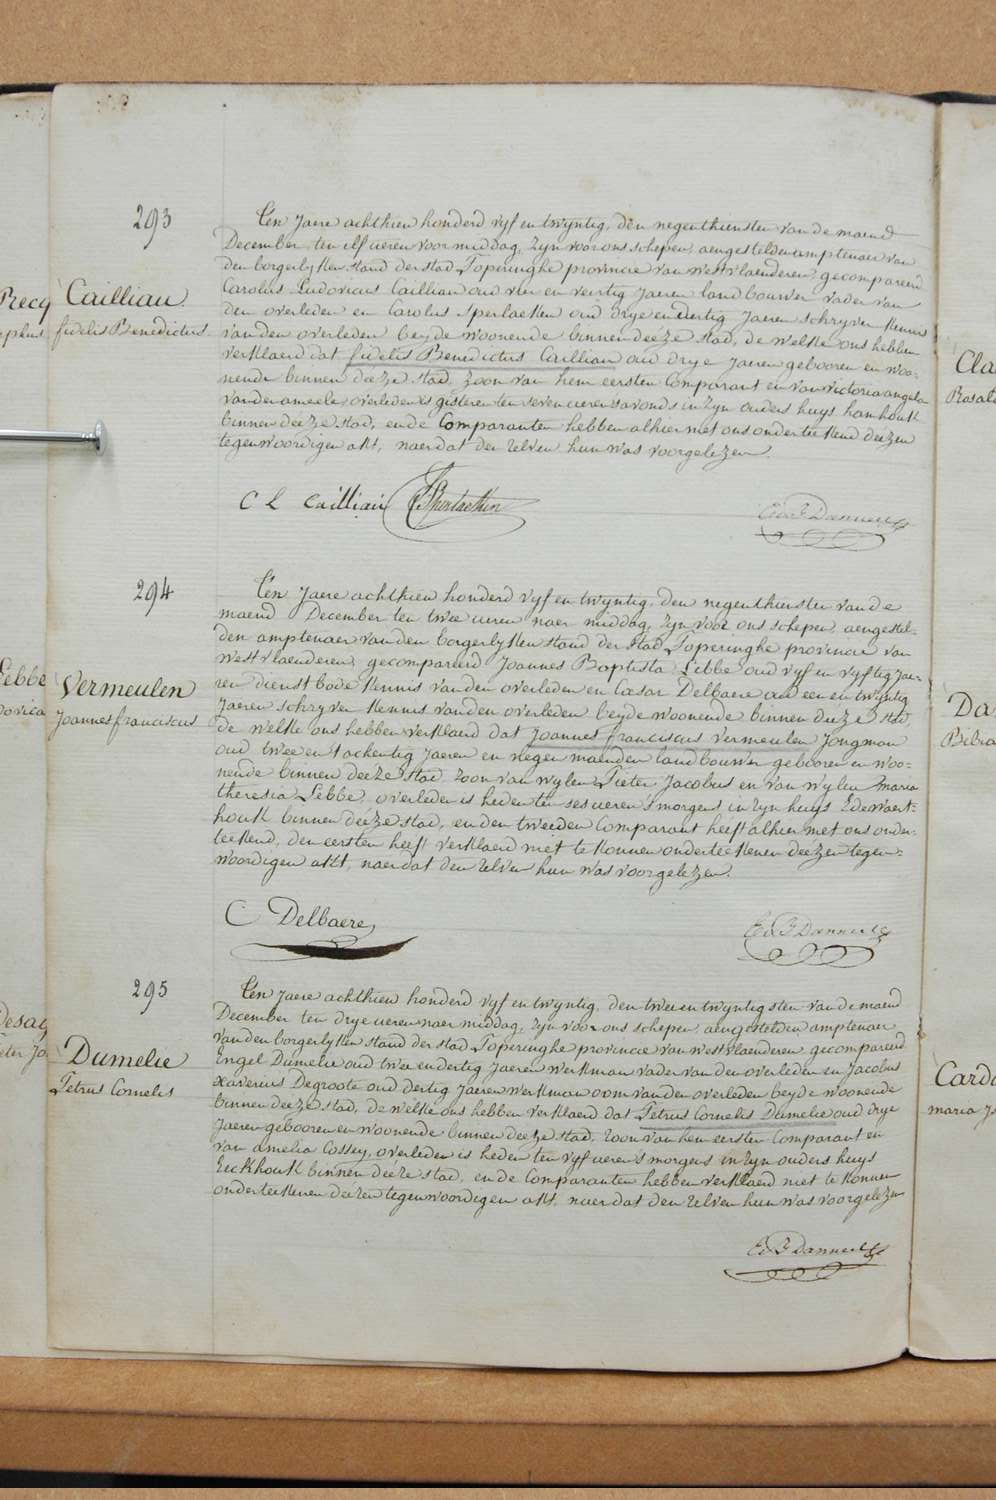 293
Cailliau
fidelis Benedictus
Den Jaere achthien honderd vyf en twyntig, den negenthiensten van de maend
December, ten elf ueren voormiddag, zyn voor ons schepen, aengestelden amptenaer van
den borgerlyken stand der stad Poperinghe provincie van westvlaenderen, gecompareerd
Carolus Ludovicus Cailliau oud vier en veirtig Jaeren landbouwer vader van
den overleden en Carolus Sperlaeken oud drye en dertig Jaeren schryver kennis
van den overleden beyde woonende binnen deeze stad, de welke ons hebben
verklaerd dat fidelis Benedictus Cailliau oud drye Jaeren gebooren en woo-
nende binnen deeze stad, zoon van hem eersten Comparant en van victoria angela
vanderameele, overleden is gisteren ten seven ueren s'avonds in zyn ouders huys hamhouk
binnen deeze stad, en de Comparanten hebben alhier met ons onderteekend deezen
tegenwoordigen akt, naer dat den zelven hun was voorgelezen.
C L Cailliau Sperlaeken
294
Vermeulen
Joannes franciscus
Den Jaere achthien honderd vyf en twyntig, den negenthiensten van de
maend December ten twee ueren naer middag, zyn voor ons schepen, aengestel-
den amptenaer van den borgerlyken stand der stad Poperinghe provincie van
westvlaenderen, gecompareerd Joannes Baptista Lebbe oud vyf en vyftig Jae-
ren dienstbode kennis van den overleden en Cæsar Delbaere oud een en twyntig
Jaeren schryver kennis van den overleden beyde woonende binnen deeze stad
de welke ons hebben verklaerd dat Joannes franciscus vermeulen Jongman
oud twee en tachentig Jaeren en negen maenden landbouwer gebooren en woo-
nende binnen deeze stad zoon van wylen Pieter Jacobus en van wylen maria
theresia Lebbe, overleden is heden ten ses ueren s'morgens in zyn huys Edewaert-
houk binnen deeze stad, en den tweeden Comparant heeft alhier met ons onder-
teekend, den eersten heeft verklaerd niet te konnen onderteekenen deezen tegen-
woordigen akt, naer dat den zelven hun was voorgelezen.
C Delbaere
295
Dumelie
Petrus Cornelis
Den Jaere achthien honderd vyf en twyntig, den twee en twyntigsten van de maend
December ten drye ueren naer middag, zyn voor ons schepen, aengestelden amptenaer
van den borgerlyken stand der stad Poperinghe provincie van westvlaenderen, gecompareerd
Engel Dumelie oud twee en dertig Jaeren werkman vader van den overleden en Jacobus
Xaverius Degroote oud dertig Jaeren werkman oom van den overleden beyde woonende
binnen deeze stad, de welke ons hebben verklaerd dat Petrus Cornelis Dumelie oud drye
Jaeren gebooren en woonende binnen deeze stad, zoon van hem eersten Comparant en
van amelia Cossey, overleden is heden ten vyf ueren s'morgens in zyn ouders huys
Eeckhouk binnen deeze stad, en de Comparanten hebben verklaerd niet te konnen
onderteekenen deezen tegenwoordigen akt, naer dat den zelven hun was voorgelezen